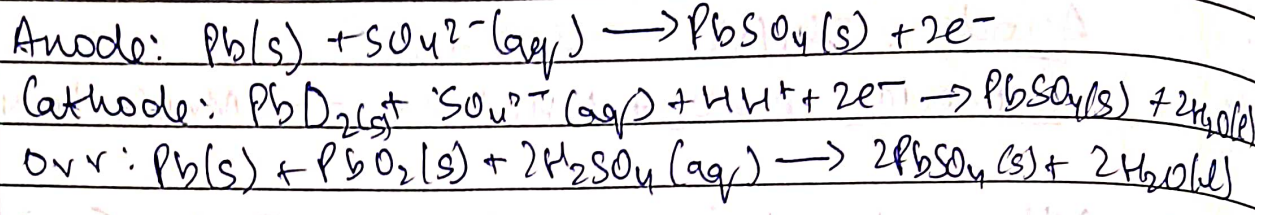 Anode: Pb(s) + SO4²⁻(aq) → PbSO4(s) + 2e⁻
Cathode: PbO2(s) + SO4²⁻(aq) + 4H⁺ + 2e⁻ → PbSO4(s) + 2H2O(l)
Ovr: Pb(s) + PbO2(s) + 2H2SO4(aq) → 2PbSO4(s) + 2H2O(l)